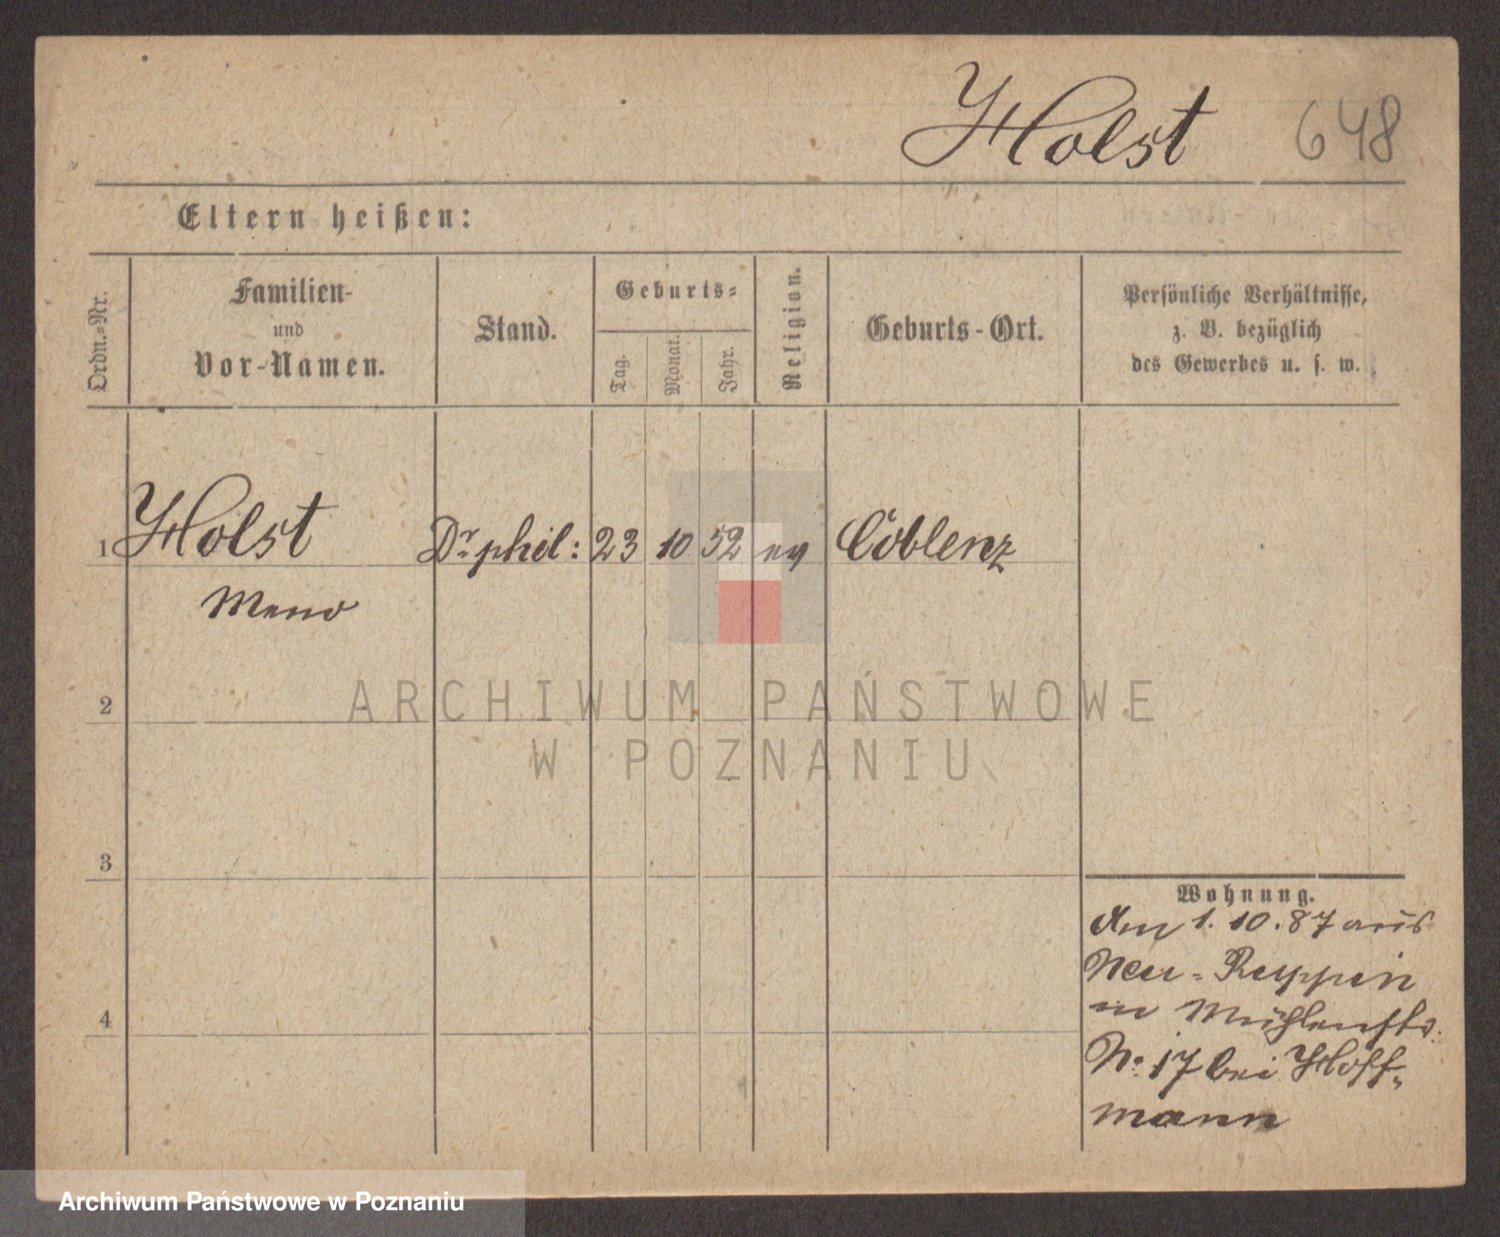 Holst 648
Eltern heißen:
Ordn.-Nr.
Familien-
und
Vor-Namen.
Stand.
Geburts-
Tag.
Monat.
Jahr.
Religion.
Geburts-Ort.
Persönliche Verhältnisse,
z. B. bezüglich
des Gewerbes u. s. w.
1 Holst Dr. phil: 23 10 52 ev Coblenz
Meno
2
3
4
Wohnung.
Am 1. 10. 87 aus
Neu-Ruppin
in Mühlenstr.
No. 17 bei Hoff-
mann
ARCHIWUM PAŃSTWOWE
W POZNANIU
Archiwum Państwowe w Poznaniu